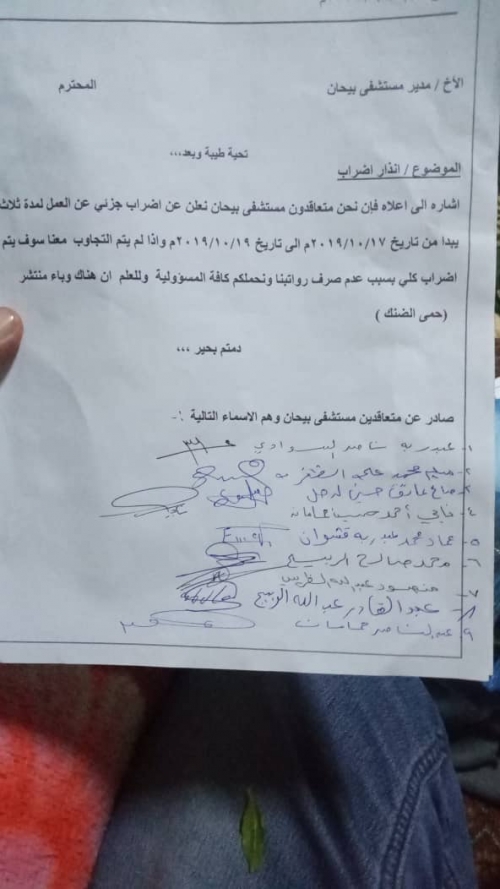 الأخ / مدير مستشفى بيحان المحترم
تحية طيبة وبعد،،،
الموضوع / انذار اضراب
اشاره الى اعلاه فإن نحن متعاقدون مستشفى بيحان نعلن عن اضراب جزئي عن العمل لمدة ثلاث
يبدا من تاريخ ٢٠١٩/١٠/١٧م الى تاريخ ٢٠١٩/١٠/١٩م واذا لم يتم التجاوب معنا سوف يتم
اضراب كلي بسبب عدم صرف رواتبنا ونحملكم كافة المسؤولية وللعلم ان هناك وباء منتشر
(حمى الضنك )
دمتم بخير ،،،
صادر عن متعاقدين مستشفى بيحان وهم الاسماء التالية :-
١- عبدربه ناصر
٢- محمد علي
٣- صالح طارق حسين
٤- أحمد
٥- عماد محمد عبدربه قشوان
٦- محمد صالح الربيع
٧- منصور عبدالله
٨- عبدالقادر عبدالله الربيع
٩- عبدالناصر